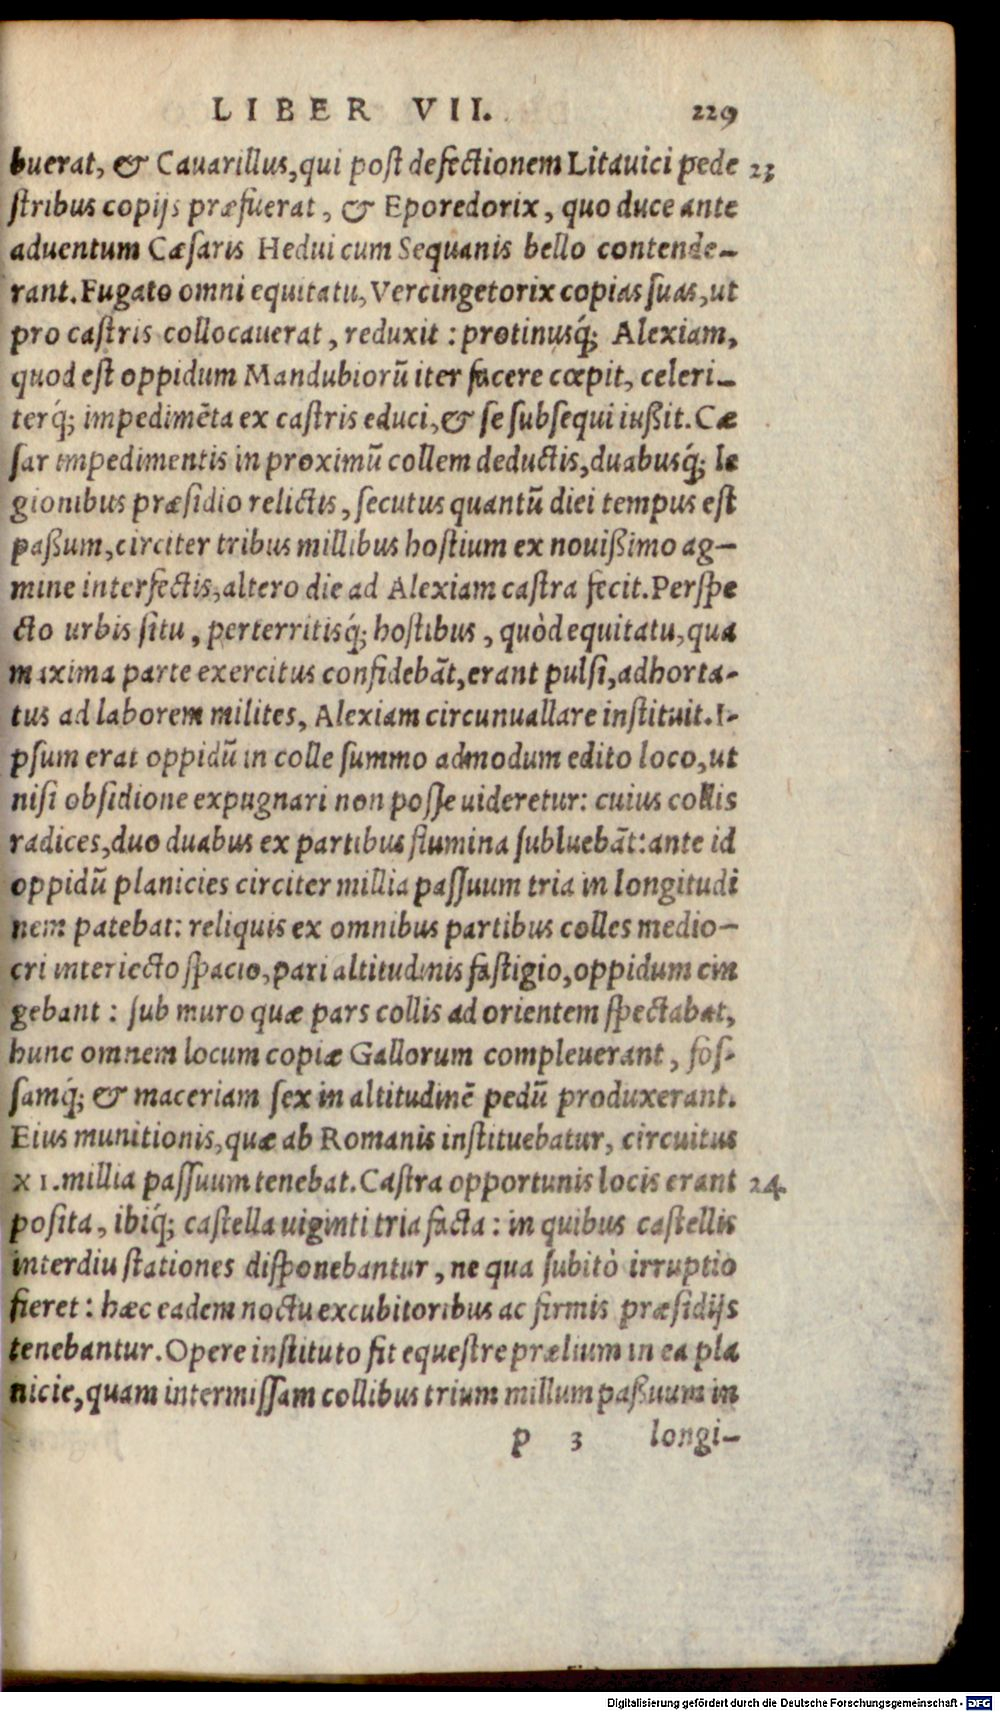 LIBER VII. 229
buerat, & Cauarillus, qui post defectionem Litauici pede 23
stribus copijs præfuerat, & Eporedorix, quo duce ante
aduentum Cæsaris Hedui cum Sequanis bello contende-
rant. Fugato omni equitatu, Vercingetorix copias suas, ut
pro castris collocauerat, reduxit: protinusq́; Alexiam,
quod est oppidum Mandubiorũ iter facere cœpit, celeri-
terq́; impedimẽta ex castris educi, & se subsequi iußit. Cæ
sar impedimentis in proximũ collem deductis, duabusq́; le
gionibus præsidio relictis, secutus quantũ diei tempus est
paßum, circiter tribus millibus hostium ex nouißimo ag-
mine interfectis, altero die ad Alexiam castra fecit. Perspe
cto urbis situ, perterritisq́; hostibus, quòd equitatu, qua
maxima parte exercitus confidebãt, erant pulsi, adhorta-
tus ad laborem milites, Alexiam circunuallare instituit. I-
psum erat oppidũ in colle summo admodum edito loco, ut
nisi obsidione expugnari non posse uideretur: cuius collis
radices, duo duabus ex partibus flumina subluebãt: ante id
oppidũ planicies circiter millia passuum tria in longitudi
nem patebat: reliquis ex omnibus partibus colles medio-
cri interiecto spacio, pari altitudinis fastigio, oppidum cin
gebant: sub muro quæ pars collis ad orientem spectabat,
hunc omnem locum copiæ Gallorum compleuerant, fos-
samq́; & maceriam sex in altitudinẽ pedũ produxerant.
Eius munitionis, quæ ab Romanis instituebatur, circuitus
XI. millia passuum tenebat. Castra opportunis locis erant 24
posita, ibiq́; castella uiginti tria facta: in quibus castellis
interdiu stationes disponebantur, ne qua subitò irruptio
fieret: hæc eadem noctu excubitoribus ac firmis præsidijs
tenebantur. Opere instituto fit equestre prælium in ea pla
nicie, quam intermissam collibus trium millum paßuum in
p 3 longi-
Digitalisierung gefördert durch die Deutsche Forschungsgemeinschaft - DFG